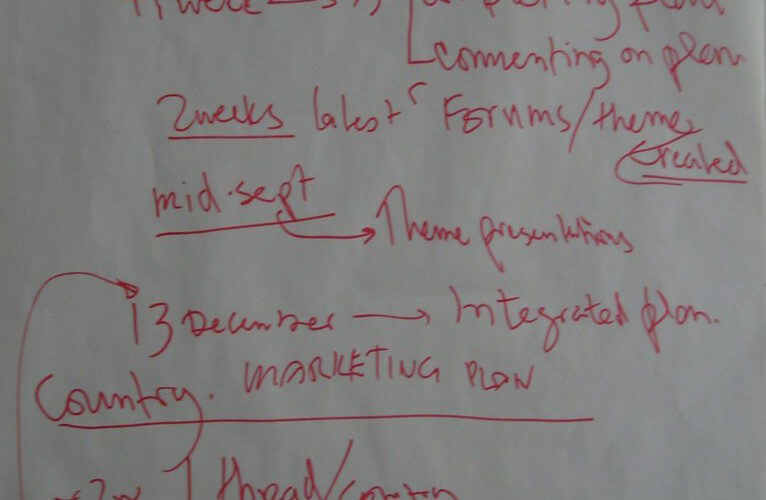 1 week
commenting on plan
2weeks latest Forums/themes
created
mid.sept
Theme presentations
13 December → Integrated plan.
Country. MARKETING PLAN
1 thread/